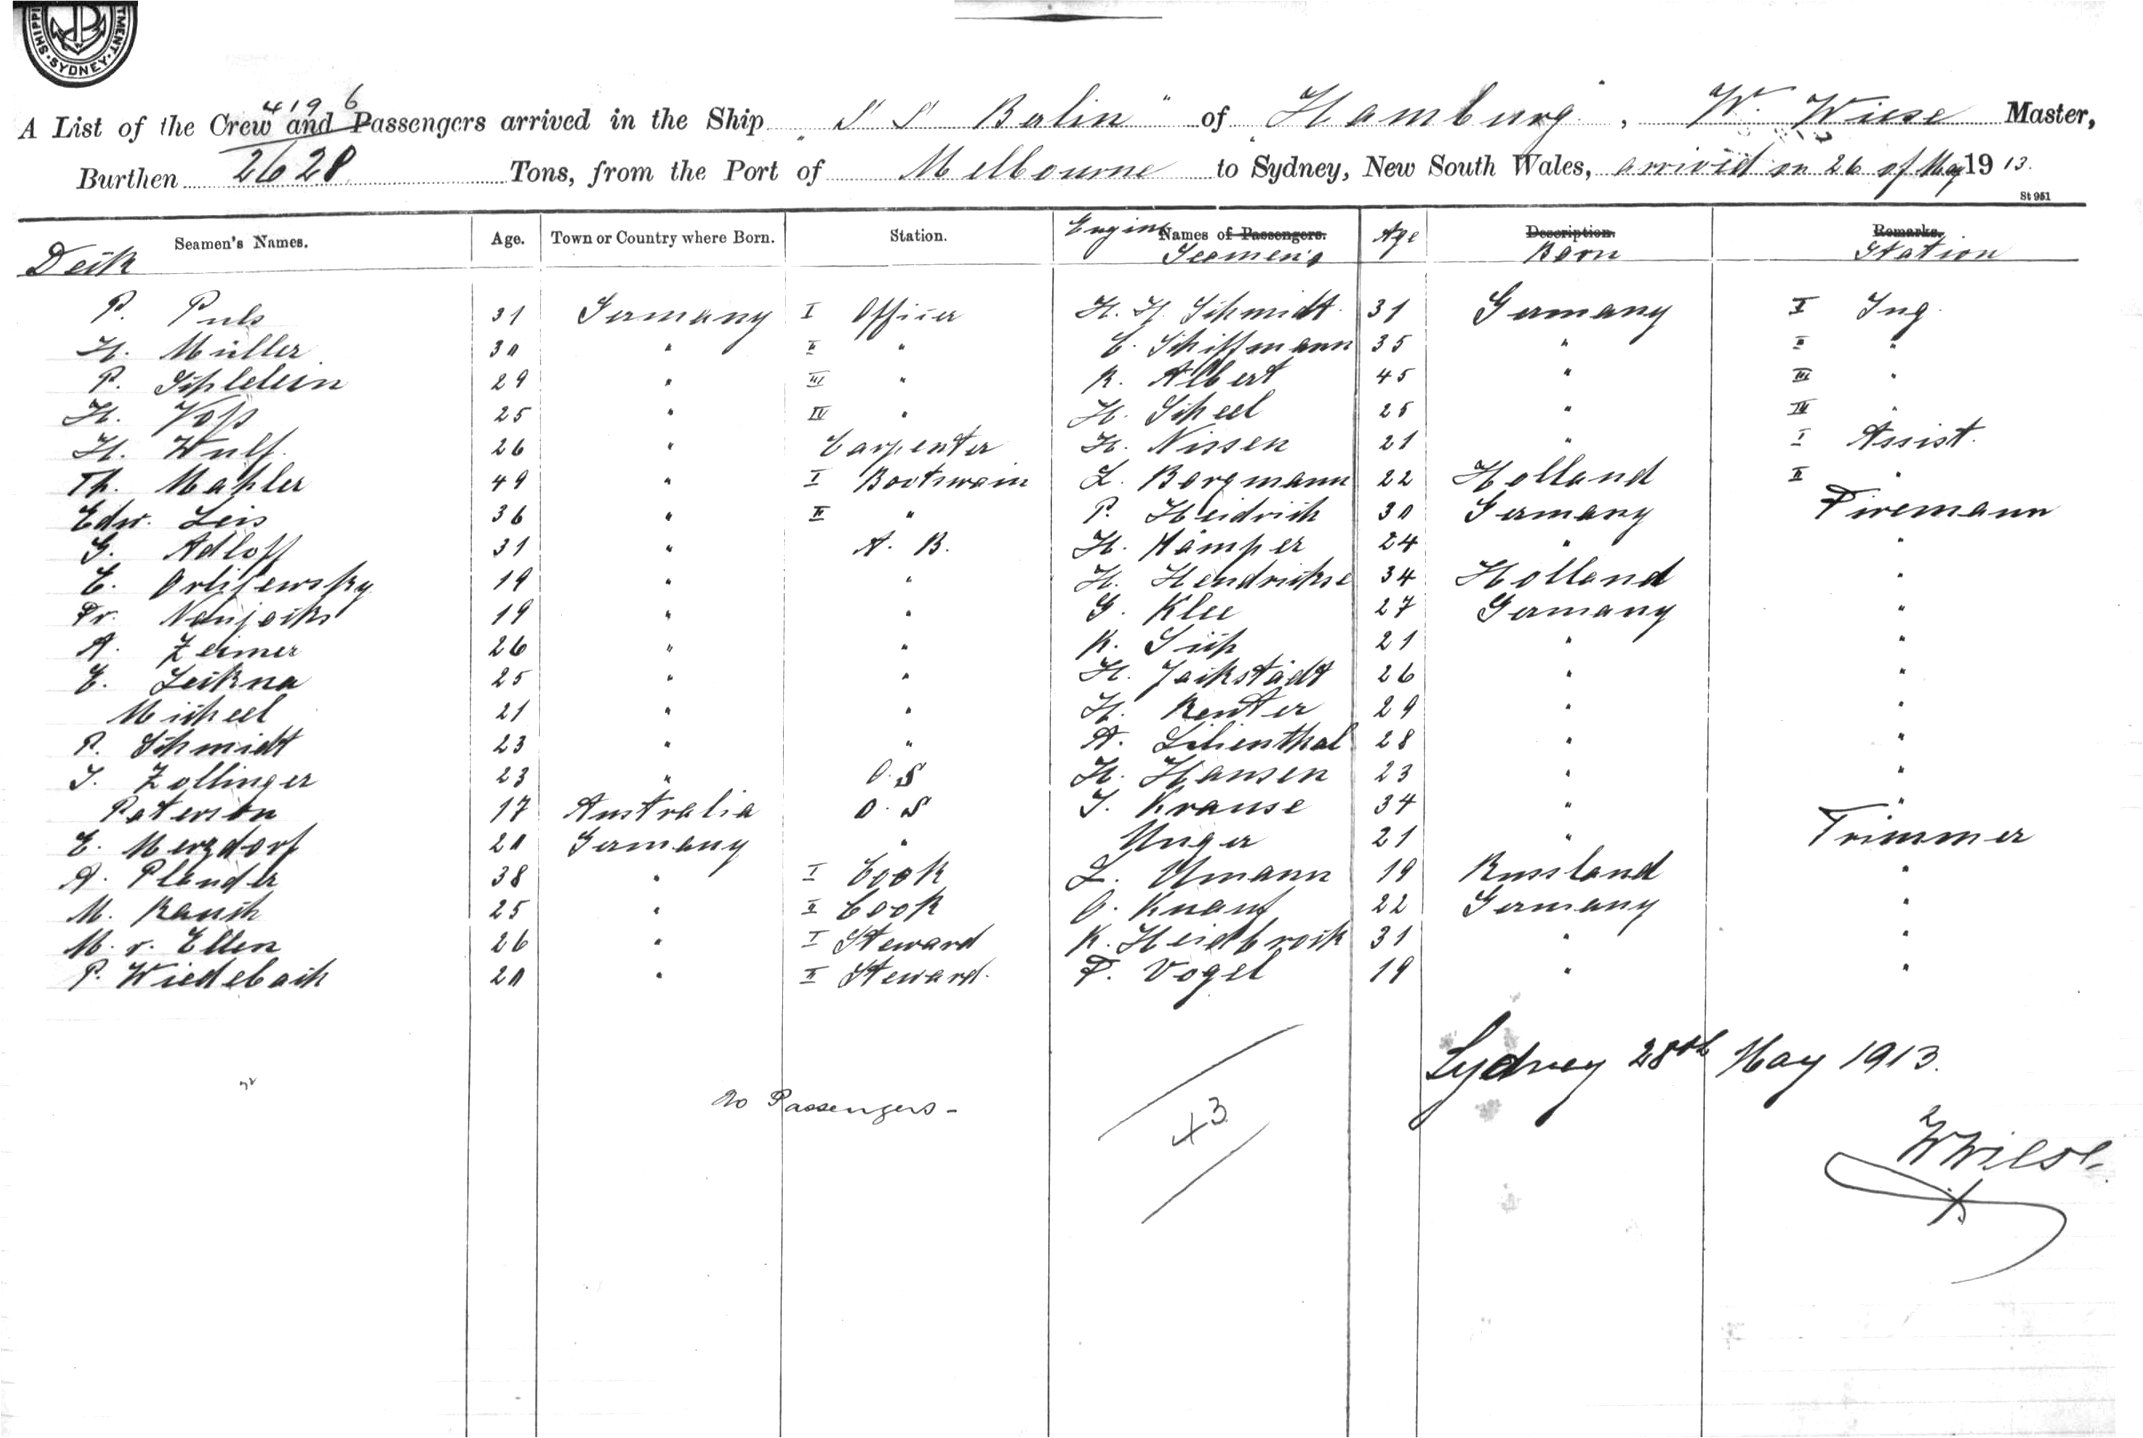 SHIPPI TMENT · SYDNEY ·
4196
A List of the Crew and Passengers arrived in the Ship "S S Balin" of Hamburg, W. Wiese Master,
Burthen 2628 Tons, from the Port of Melbourne to Sydney, New South Wales, arrived on 26 of May 1913.
St 951
Seamen's Names. Age. Town or Country where Born. Station. Engine Names of Passengers. Age Description. Remarks.
Deck Seamen's Born Station
P. Puls 31 Germany I Officer H. H. Schmidt 31 Germany I Ing.
H. Müller 30 " II " E. Schiffmann 35 " II "
P. 29 " III " K. Albert 45 " III "
H. Voß 25 " IV " H. Scheel 25 " IV "
H. Wulf. 26 " Carpenter H. Nissen 21 " I Assist.
Th. Mahler 49 " I Bootswain L. Borgmann 22 Holland II "
Edw. Leis 36 " II " P. Heidrich 30 Germany Firemann
G. Adloff 31 " A. B. H. Kamper 24 " "
E. 19 " " H. Hendrikse 34 Holland "
Fr. 19 " " G. Klee 27 Germany "
A. Zeimer 26 " " K. 21 " "
E. Leikna 25 " " H. Jackstädt 26 " "
Micheel 21 " " H. Renter 29 " "
P. Schmidt 23 " " A. Lilienthal 28 " "
J. Zollinger 23 " O. S H. Hansen 23 " "
Paterson 17 Australia O. S J. Krause 34 " "
E. Merzdorf 20 Germany " Unger 21 " Trimmer
A. Plander 38 " I Cook L. Umann 19 Russland "
M. Rauch 25 " II Cook O. Knauf 22 Germany "
M. v. Ellen 26 " I Steward K. Heidbrock 31 " "
P. Wiedebach 20 " II Steward. F. Vogel 19 " "
Sydney 28th May 1913.
No Passengers -
43
WWiese.